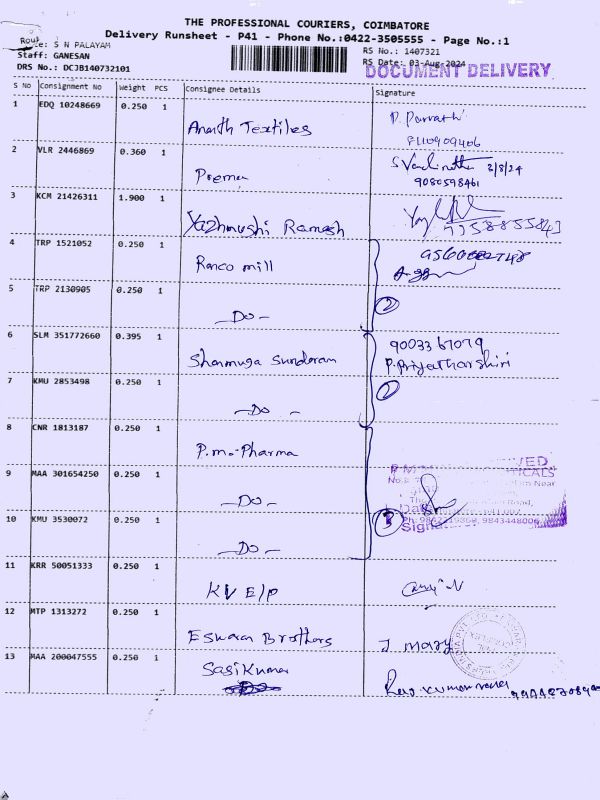 THE PROFESSIONAL COURIERS, COIMBATORE
Delivery Runsheet - P41 - Phone No.:0422-3505555 - Page No.:1
Route: S N PALAYAM
RS No.: 1407321
Staff: GANESAN
RS Date: 03-Aug-2024
DRS No.: DCJB140732101
DOCUMENT DELIVERY
S No Consignment No Weight PCS Consignee Details Signature
1 EDQ 10248669 0.250 1 Ananth Textiles P. Parvathi
2 VLR 2446869 0.360 1 Prema 3/8/24
9080598461
3 KCM 21426311 1.900 1 Yazhmushi Ramesh
4 TRP 1521052 0.250 1 Ranco mill
5 TRP 2130905 0.250 1 -Do- 2
6 SLM 351772660 0.395 1 Shanmuga Sundaram 9003367079
P. Priyatharshini
7 KMU 2853498 0.250 1 -Do-
8 CNR 1813187 0.250 1 P.m. Pharma
9 MAA 301654250 0.250 1 -Do-
10 KMU 3530072 0.250 1 -Do- 3
11 KRR 50051333 0.250 1 KV E/P
12 MTP 1313272 0.250 1 Eswaran Brothers J mary
13 MAA 200047555 0.250 1 Sasikumar